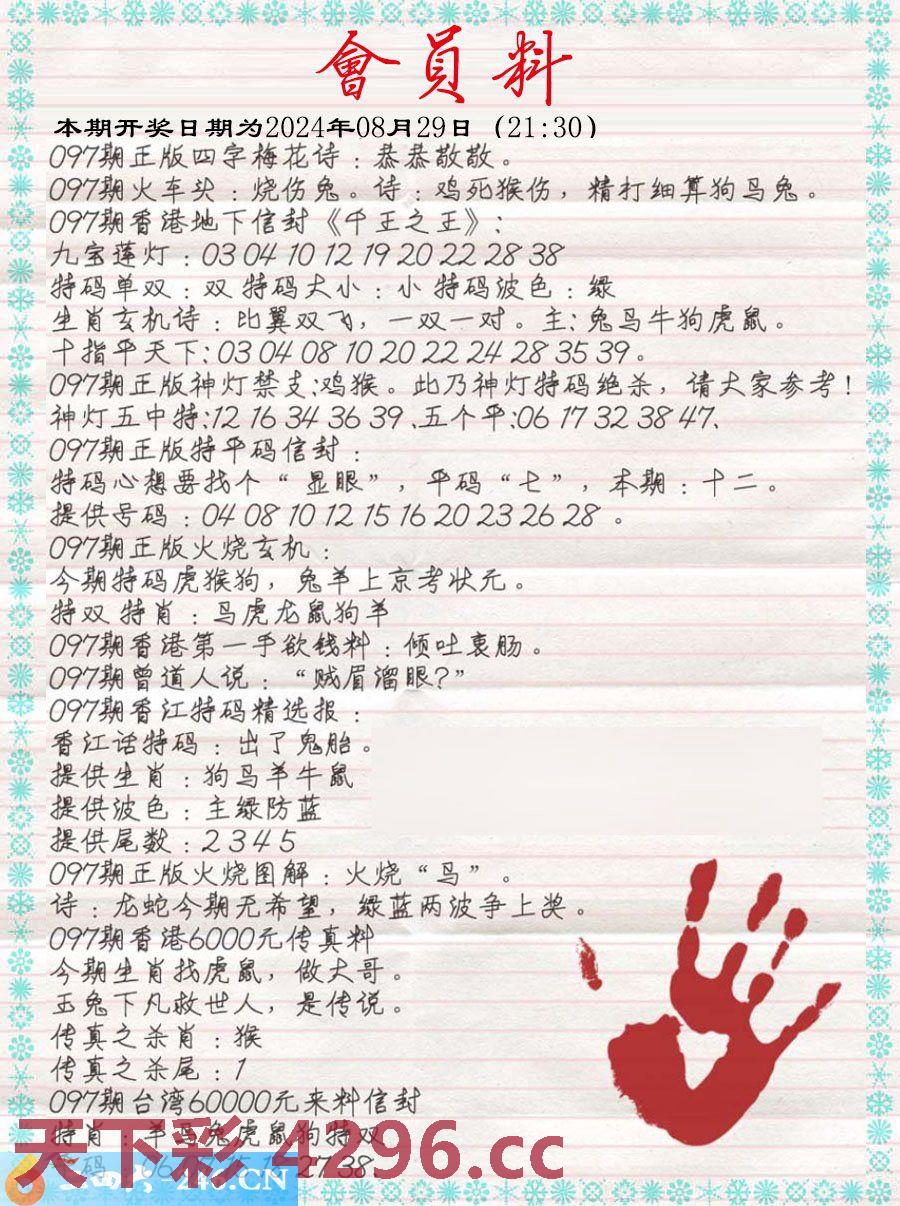 會員料
本期开奖日期为2024年08月29日（21:30）
097期正版四字梅花诗：恭恭敬敬。
097期火车头：烧伤兔。诗：鸡死猴伤，精打细算狗马兔。
097期香港地下信封《千王之王》：
九宝莲灯：03 04 10 12 19 20 22 28 38
特码单双：双 特码大小：小 特码波色：绿
生肖玄机诗：比翼双飞，一双一对。主：兔马牛狗虎鼠。
十指平天下：03 04 08 10 20 22 24 28 35 39。
097期正版神灯禁支：鸡猴。此乃神灯特码绝杀，请大家参考！
神灯五中特：12 16 34 36 39、五个平：06 17 32 38 47、
097期正版特平码信封：
特码心想要找个“显眼”，平码“七”，本期：十二。
提供号码：04 08 10 12 15 16 20 23 26 28 。
097期正版火烧玄机：
今期特码虎猴狗，兔羊上京考状元。
特双 特肖：马虎龙鼠狗羊
097期香港第一手欲钱料：倾吐衷肠。
097期曾道人说：“贼眉溜眼？”
097期香江特码精选报：
香江话特码：出了鬼胎。
提供生肖：狗马羊牛鼠
提供波色：主绿防蓝
提供尾数：2 3 4 5
097期正版火烧图解：火烧“马”。
诗：龙蛇今期无希望，绿蓝两波争上奖。
097期香港6000元传真料
今期生肖找虎鼠，做大哥。
玉兔下凡救世人，是传说。
传真之杀肖：猴
传真之杀尾：1
097期台湾60000元来料信封
特肖：羊马兔虎鼠狗特双
天下彩 4296.cc
27 38
246.CN